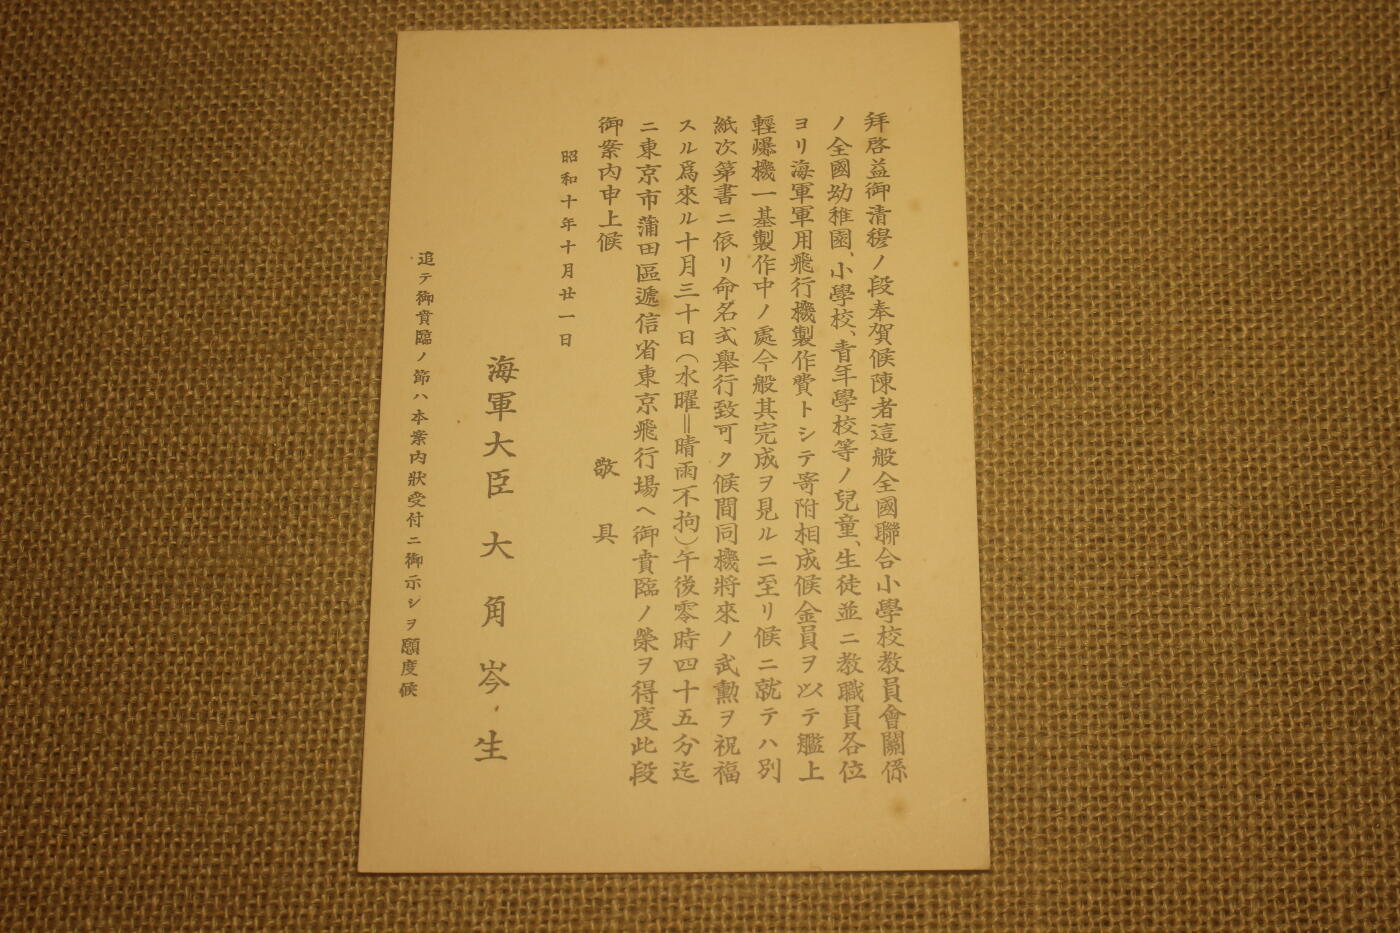 拜啓益御清穆ノ段奉賀候陳者這般全國聯合小學校教員會關係
ノ全國幼稚園、小學校、青年學校等ノ兒童、生徒並ニ教職員各位
ヨリ海軍軍用飛行機製作費トシテ寄附相成候金員ヲ以テ艦上
輕爆機一基製作中ノ處今般其完成ヲ見ルニ至リ候ニ就テハ別
紙次第書ニ依リ命名式舉行致可ク候間同機將來ノ武勳ヲ祝福
スル爲來ル十月三十日(水曜‖晴雨不拘)午後零時四十五分迄
ニ東京市蒲田區遞信省東京飛行場ヘ御賁臨ノ榮ヲ得度此段
御案内申上候 敬具
昭和十年十月廿一日
海軍大臣 大角岑生
追テ御賁臨ノ節ハ本案内狀受付ニ御示シヲ願度候